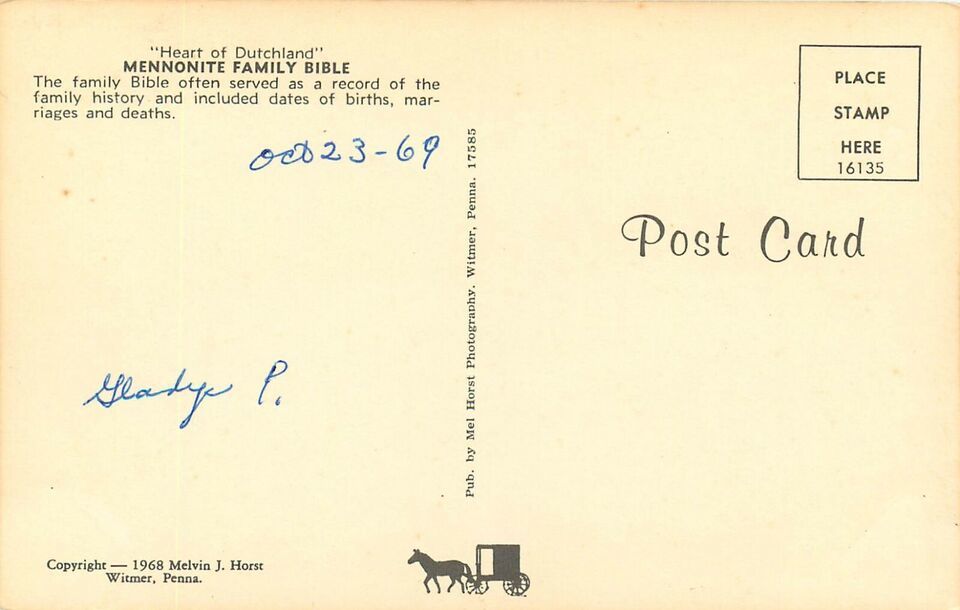 "Heart of Dutchland"
MENNONITE FAMILY BIBLE
The family Bible often served as a record of the
family history and included dates of births, mar-
riages and deaths.
Oct 23-69
Gladys P.
Copyright — 1968 Melvin J. Horst
Witmer, Penna.
Pub. by Mel Horst Photography. Witmer, Penna. 17585
PLACE
STAMP
HERE
16135
Post Card